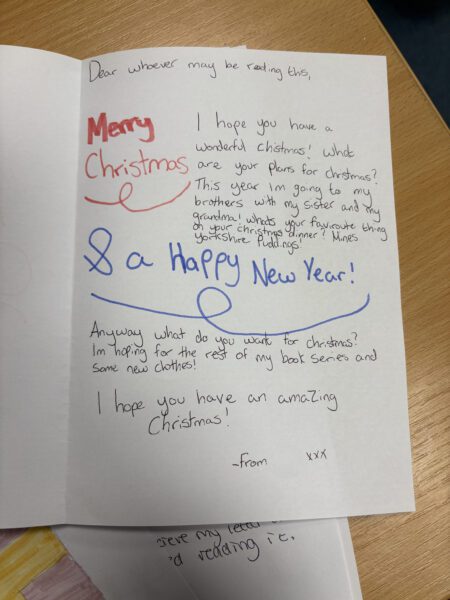 Dear whoever may be reading this,
Merry
Christmas
I hope you have a
wonderful Chistmas! What
are your plans for christmas?
This year Im going to my
brothers with my sister and my
grandma! Whats your faviroute thing
on your christmas dinner? Mines
Yorkshire Puddings!
& a Happy New Year!
Anyway what do you want for christmas?
Im hoping for the rest of my book series and
some new clothes!
I hope you have an amazing
Christmas!
-from xxx
my
reading it.